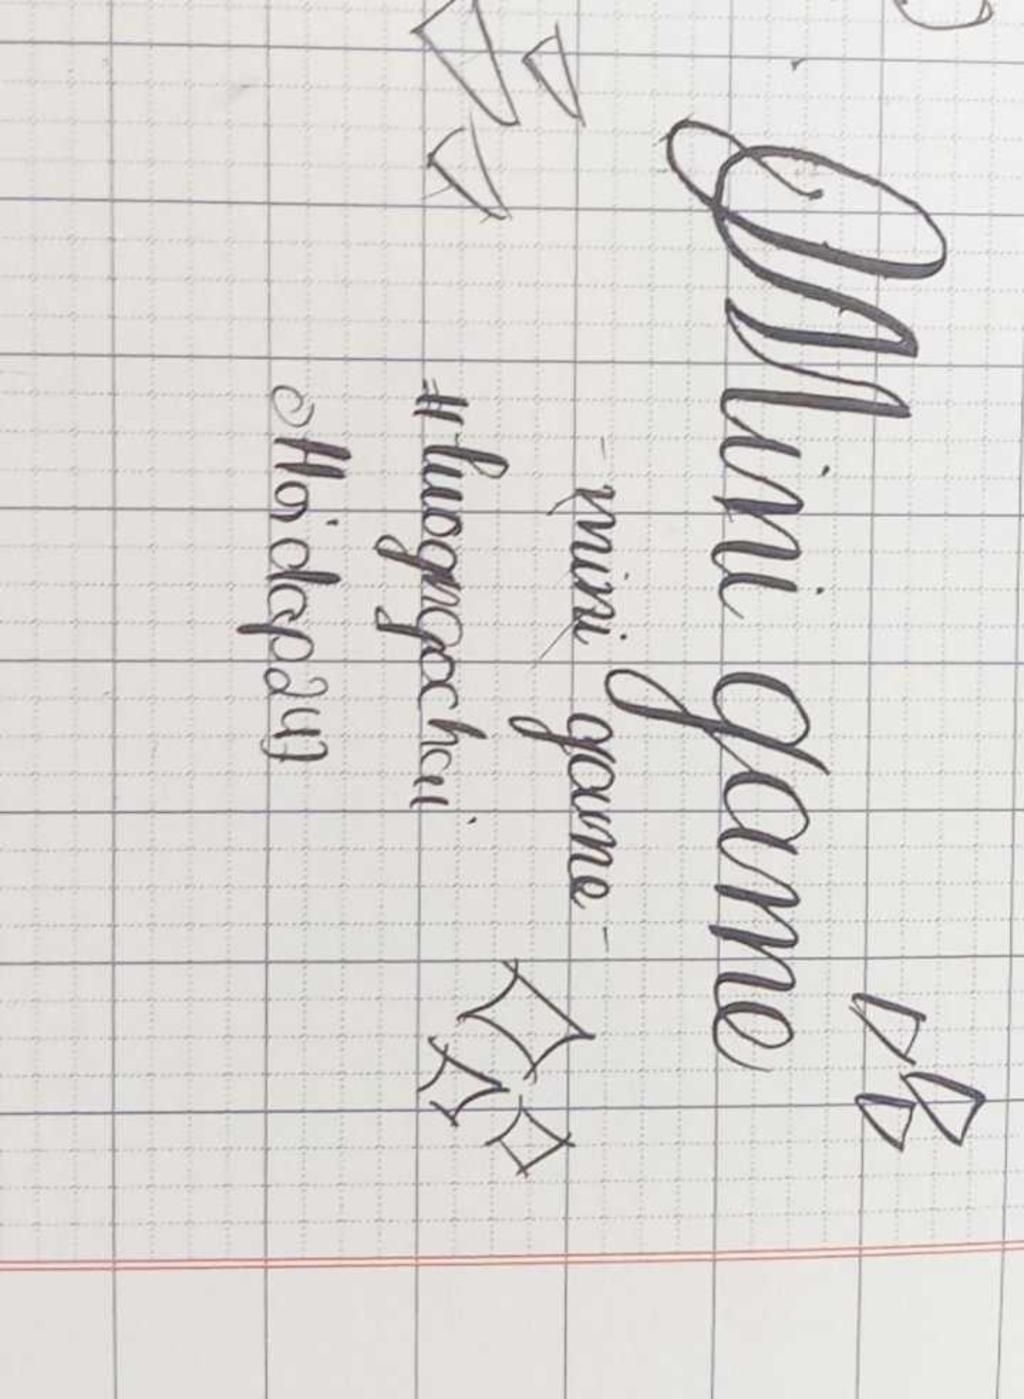 Mini game
- mini game -
#luogngochai
Hoidap247